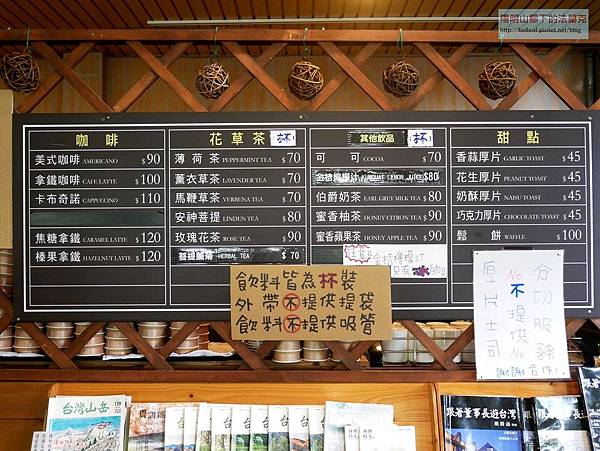 陽明山腳下的法蘭克
http://hallen1.pixnet.net/blog
咖啡
美式咖啡 AMERICANO $90
拿鐵咖啡 CAFE LATTE $100
卡布奇諾 CAPPUCCINO $110
焦糖拿鐵 CARAMEL LATTE $120
榛果拿鐵 HAZELNUT LATTE $120
花草茶 杯
薄荷茶 PEPPERMINT TEA $70
薰衣草茶 LAVENDER TEA $70
馬鞭草茶 VERBENA TEA $70
安神菩提 LINDEN TEA $80
玫瑰花茶 ROSE TEA $90
HERBAL TEA $70
其他飲品 杯
可可 COCOA $70
金桔檸檬汁 KUMQUAT LEMON JUICE $80
伯爵奶茶 EARL GREY MILK TEA $80
蜜香柚茶 HONEY CITRON TEA $90
蜜香蘋果茶 HONEY APPLE TEA $90
金桔檸檬汁
只有冰的!!
甜點
香蒜厚片 GARLIC TOAST $45
花生厚片 PEANUT TOAST $45
奶酥厚片 NAISU TOAST $45
巧克力厚片 CHOCOLATE TOAST $45
鬆餅 WAFFLE $100
飲料皆為杯裝
外帶不提供提袋
飲料不提供吸管
厚片土司
No不提供No
分切服務
謝謝合作!
台灣山岳
跟著董事長遊台灣